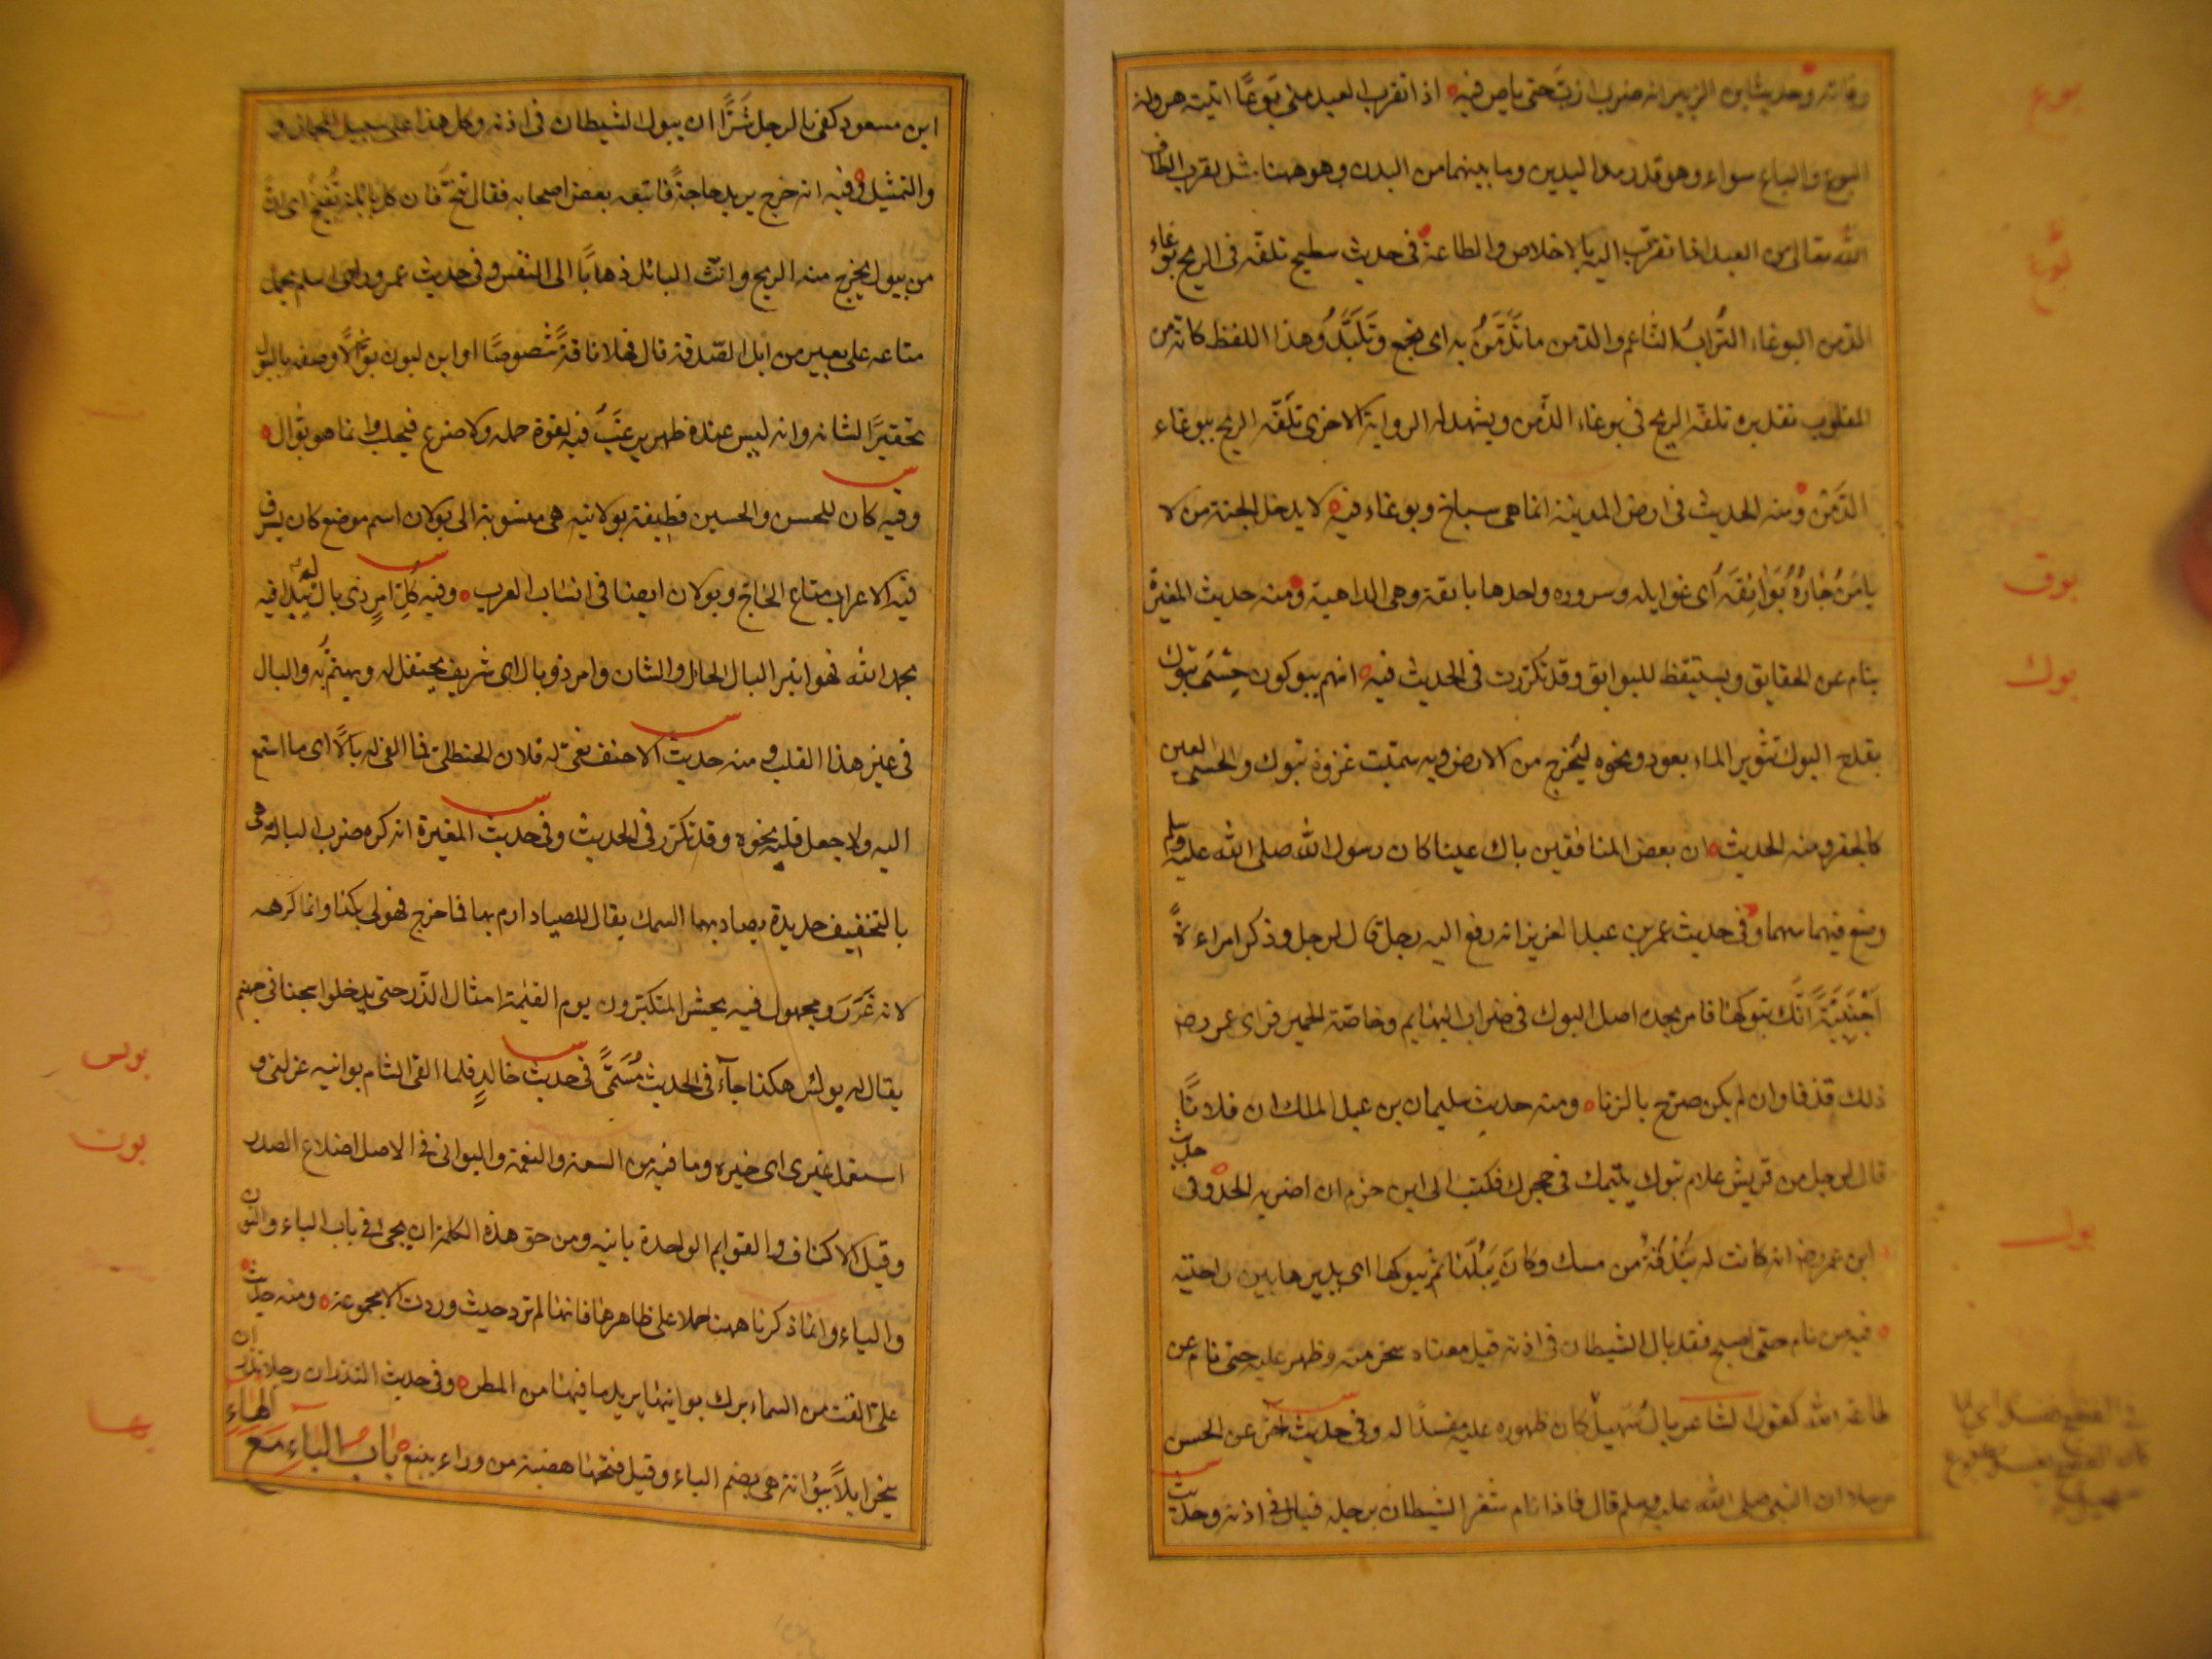 وفاته وحديث ابن الزبير انه ضرب ازبّ حتى باص فيه اذا تقرب العبد منى بوعًا اتيته هرولة
البوع والباع سواء وهو قدر مد اليدين وما بينهما من البدن وهو ههنا مثل لقرب الطاف
الله تعالى من العبد اذا تقرّب اليه بالاخلاص والطاعة فى حديث سطيح تلفّه فى الريح بوغاء
الدمن البوغاء التُّرابُ الناعم والدمن ما تَدَمَّنُ به اى تجمع وتَلَبَّدُ وهذا اللفظ كانه من
المقلوب تقديره تلفّه الريح فى بوغاء الدّمن ويشهد له الرواية الاخرى تلفّه الريح ببوغاء
الدِّمن ومنه الحديث فى ارض المدينة انما هى سباخ وبوغاء فيه لا يدخل الجنة من لا
يامَنُ جَارُهُ بَوَائِقَهُ اى غوايله وشروره واحدها بائقة وهى الداهية ومنه حديث المغيرة
ينام عن الحقايق ويستيقظ للبوايق وقد تكررت فى الحديث فيه انهم يبوكون حِسْىَ تبوك
بقدح البوك تثوير الماء بعود ونحوه ليُخرج من الارض وبه سمّيت غزوة تبوك والحسى العين
كالحفر ومنه الحديث ان بعض المنافقين باك عينا كان رسول الله صلى الله عليه وسلم
وضع فيهما سهما وفى حديث عمر بن عبد العزيز انه رفع اليه رجل قال لرجل وذكر امراءةً
اَجْنَبِيَّةً انَّك تبوكها فامر بحده اصل البوك فى ضراب البهايم وخاصّة الحمير فراى عمر رض
ذلك قذفا وان لم يكن صرّح بالزنا ومنه حديث سليمان بن عبد الملك ان فلانًا
قال لرجل من قريش علام تبوك يتيمك فى حجرك فكتب الى ابن حزم ان اضربه الحد وفى حديث
ابن عمر رض انه كانت له بُنْدُقَةٌ من مسك وكانَ يَبُلُّهَا ثم يبوكها اى يديرها بين راحتيه
فيه من نام حتى اصبح فقد بال الشيطان فى اذنه قيل معناه سخر منه وظهر عليه حتى نام عن
طاعة الله كقول الشاعر بالَ سُهَيلٌ كان ظهوره عليه مفسدًا له وفى حديث اخر عن الحسن
مرسلا ان النبى صلى الله عليه وسلم قال فاذا نام شغر الشيطان برجله فبال فى اذنه وحديث
بوع
بوغ
بوق
بوك
بول
ابن مسعود كفى بالرجل شَرًّا ان يبول الشيطان فى اذنه وكل هذا على سبيل المجاز و
والتمثيل وفيه انه خرج يريد حاجةً فاتبعه بعض اصحابه فقال تنحّ فان كل بائلة تُفيخُ اى ان
من يبول يخرج منه الريح وانّث البائل ذهابًا الى النفس وفى حديث عمر وراى اسلم يحمل
متاعه على بعير من ابل الصّدقة قال فهلا ناقةً شصوصًا او ابن لبون بوّالًا وصفه بالبول
تحقيرًا لشانه وانه ليس عنده ظهر يرغَبُ فيه لقوة حمله ولا ضرع فيحلب وانما هو بوّال
وفيه كان للحسن والحسين قطيفة بولانيه هى منسوبة الى بولان اسم موضع كان يسرق
فيه الاعراب متاع الحاج وبولان ايضا فى انساب العرب وفيه كُل امرٍ ذى بال لم يُبدا فيه
بحمد الله فهو ابتر البال الحال والشان وامر ذو بال اى شريف يحتفل له ويهتمّ به والبال
فى غير هذا القلب ومنه حديث الاحنف نعى له فلان الحنظلى فما القى له بالًا اى ما استمع
اليه ولا جعل قلبه نحوه وقد تكرر فى الحديث وفى حديث المغيرة انه كره ضرب البالة هى
بالتخفيف حديدة يصاد بهما السمك يقال للصياد ارم بها فما خرج فهو لى بكذا وانما كرهه
لانه غَرَرٌ ومجهول فيه يحشر المتكبرون يوم القيمة امثال الذّر حتى يدخلوا سجنا فى جهنم
يقال له بولس هكذا جآء فى الحديث مُسَمًّى فى حديث خالدٍ فلما القى الشام بوانيه عزلنى و
استعمل غيرى اى خيره وما فيه من السعة والنعمة والبوانى فى الاصل اضلاع الصدر
وقيل الاكتاف والقوايم الواحدة بانيه ومن حق هذه الكلمة ان يجىء فى باب الباء والنون
والياء وانما ذكرنا ههنا حملا على ظاهرها فانها لم ترد حيث وردت الا مجموعة ومنه حديث
على القت من السماء برك بوانيها يريد ما فيها من المطر وفى حديث النذر ان رجلا نذر ان
ينحر ابلًا ببُوانة هى بضم الباء وقيل فتحها هضبة من وراء ينبع باب الباء مع الهاء
بولس
بون
بها